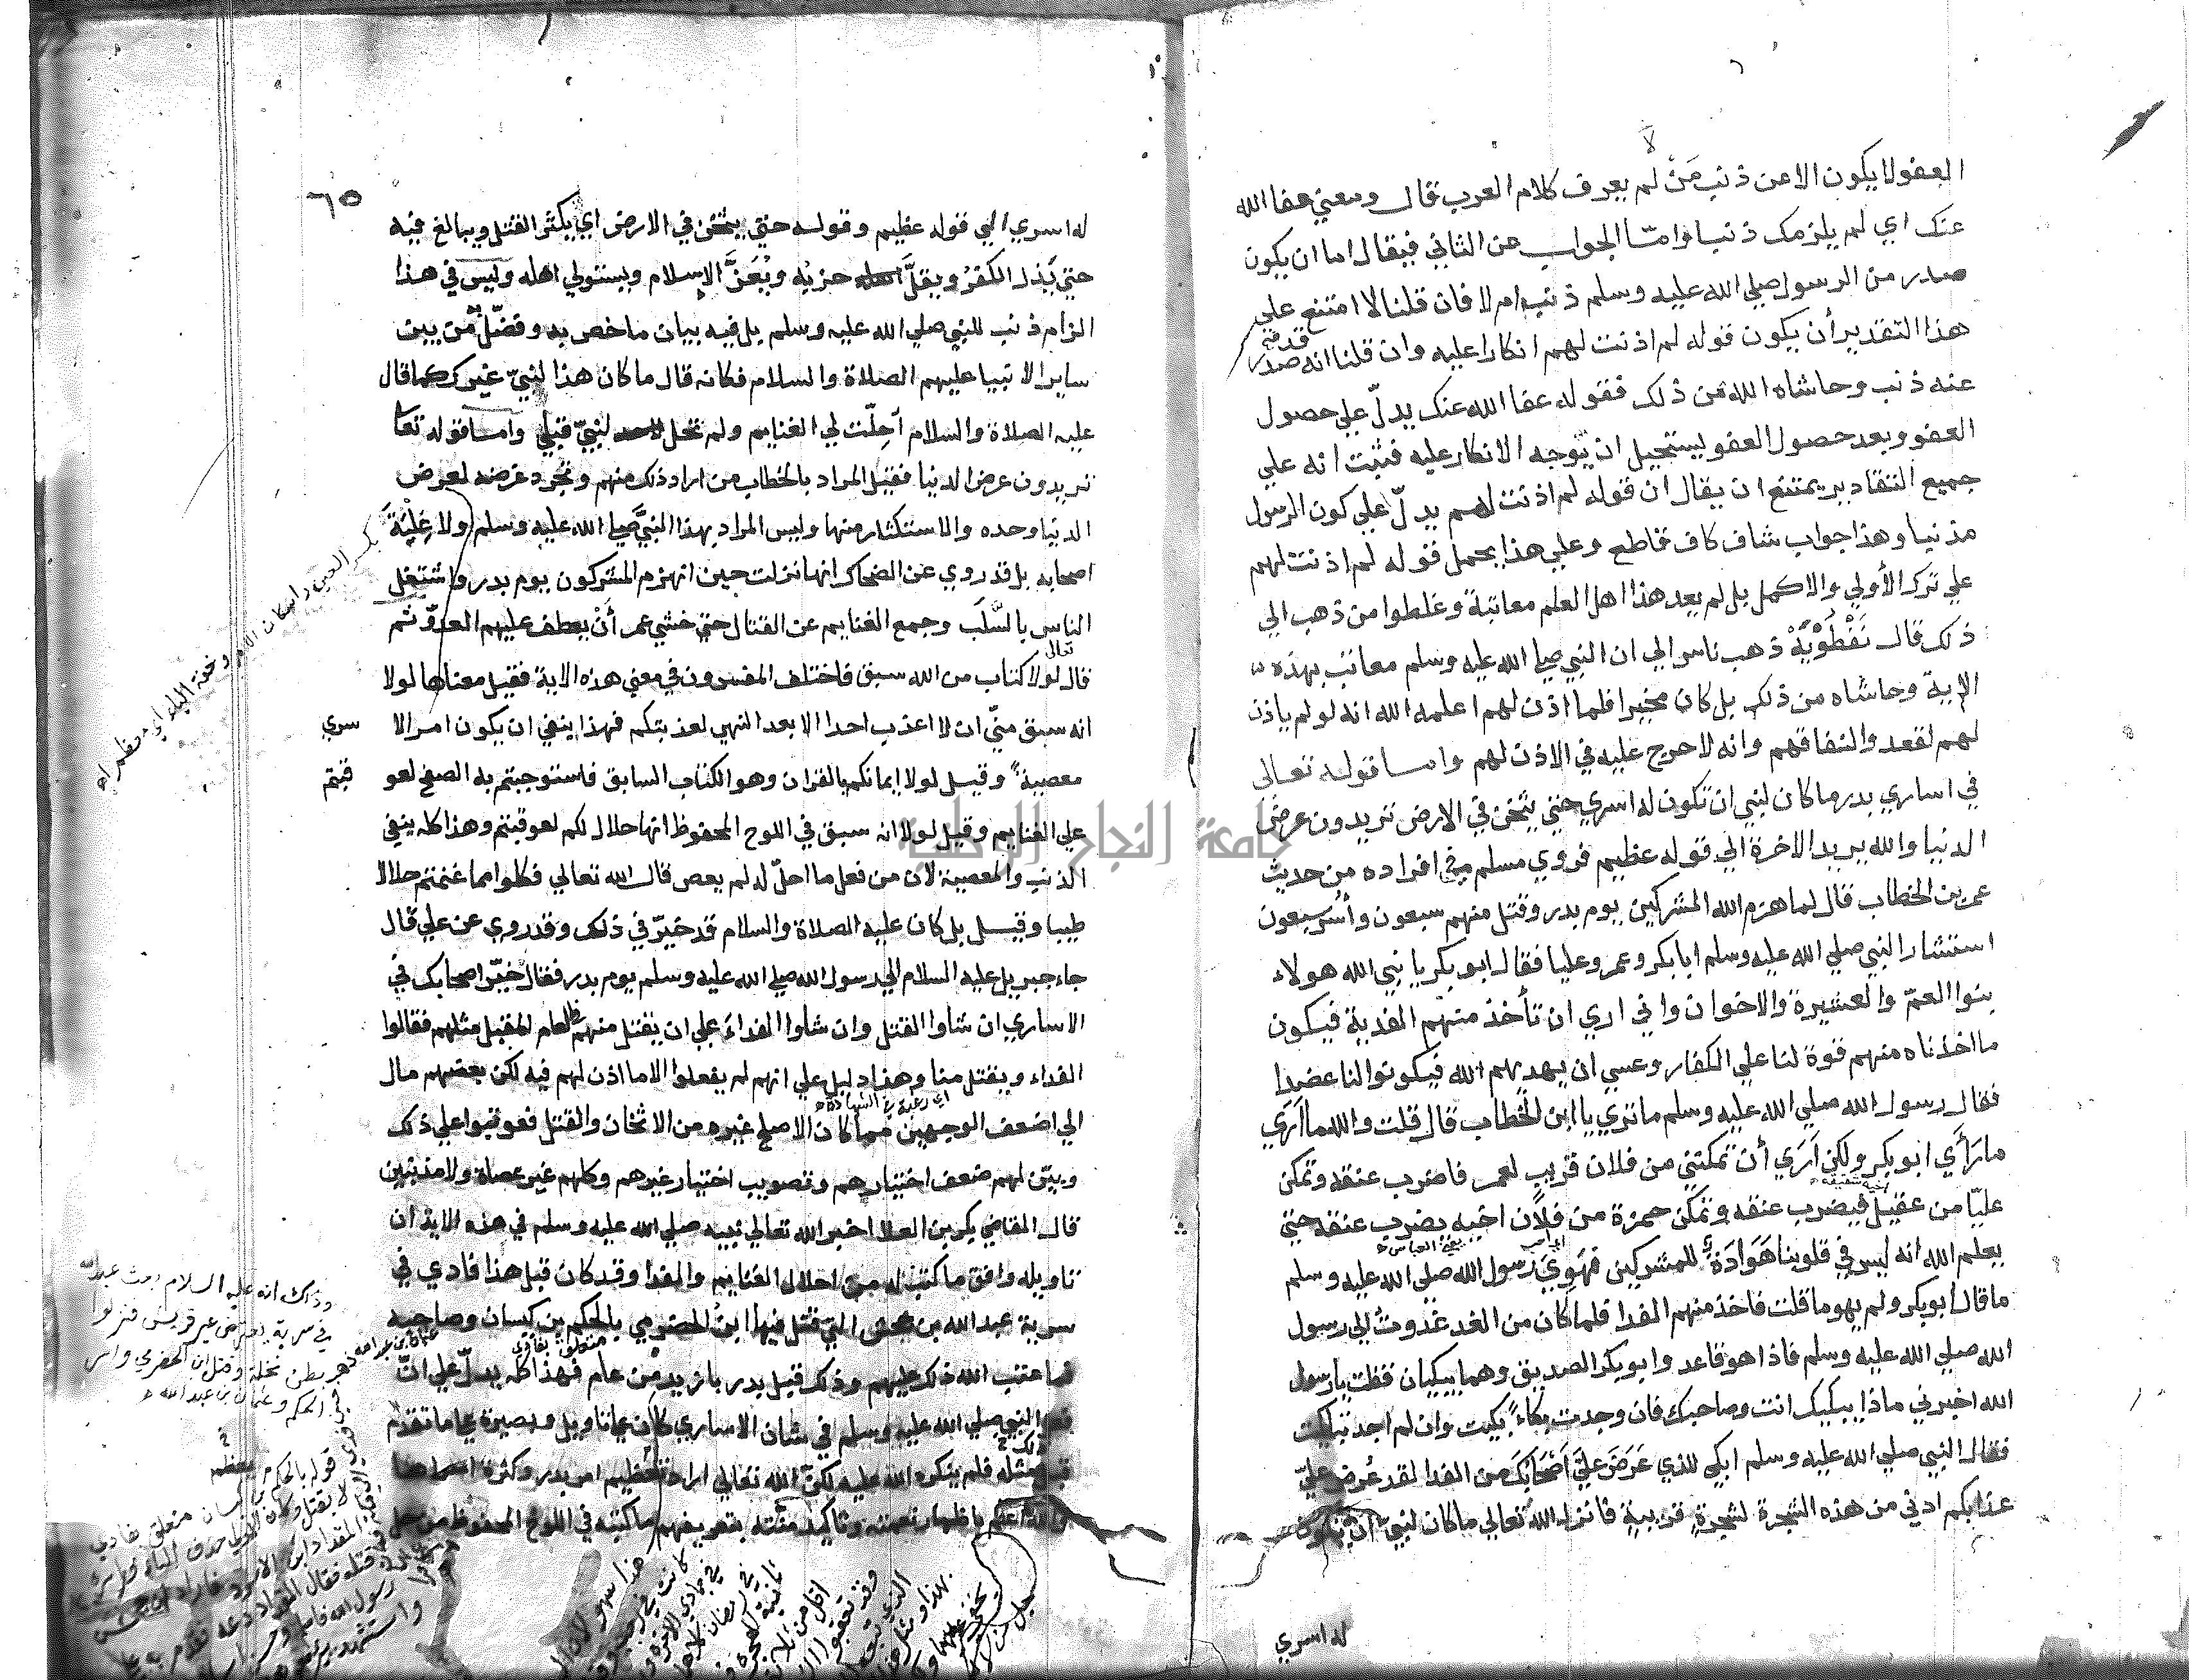 العفو لا يكون الا عن ذنب مَنْ لم يعرف كلام العرب قال ومعني عفا الله
عنك اي لم يلزمك ذنبا وامّا الجواب عن الثاني فيقال اما ان يكون
صدر من الرسول صلي الله عليه وسلم ذنب ام لا فان قلنا لا امتنع علي
هذا التقدير أن يكون قوله لم اذنت لهم انكارا عليه وان قلنا انه قد صدر
عنه ذنب وحاشاه الله من ذلك فقوله عفا الله عنك يدلّ علي حصول
العفو وبعد حصول العفو يستحيل ان يتوجه الانكار عليه فثبت انه علي
جميع التقادير يمتنع ان يقال ان قوله لم اذنت لهم يدلّ علي كون الرسول
مذنبا وهذا جواب شاف كاف قاطع وعلي هذا يحمل قوله لم اذنت لهم
علي ترك الأولي والاكمل بل لم يعد هذا اهل العلم معاتبة وغلطوا من ذهب الي
ذلك قال نَفْطَوَيْهْ ذهب ناس الي ان النبي صلي الله عليه وسلم معاتب بهذه
الاية وحاشاه من ذلك بل كان مخيرا فلما اذن لهم اعلمه الله انه لو لم ياذن
لهم لقعدوا لنفاقهم وانه لا حرج عليه في الاذن لهم واما قوله تعالى
في اساري بدر ما كان لنبي ان تكون له اسري حتي يثخن في الارض تريدون عرض
الدنيا والله يريد الاخرة الي قوله عظيم فروي مسلم في افراده من حديث
عمر بن الخطاب قال لما هزم الله المشركين يوم بدر وقتل منهم سبعون وأُسر سبعون
استشار النبي صلي الله عليه وسلم ابا بكر وعمر وعليا فقال ابو بكر يا نبي الله هولاء
بنوا العمّ والعشيرة والاخوان واني اري ان تأخذ منهم الفدية فيكون
ما اخذناه منهم قوة لنا علي الكفار وعسي ان يهديهم الله فيكونوا لنا عضدا
فقال رسول الله صلي الله عليه وسلم ما تري يا ابن الخطاب قال قلت والله ما أَرَي
ما رَأَي ابو بكر ولكن أَرَي أن تمكنني من فلان قريبٍ لعمر فاضرب عنقه وتمكن
عليّا من عقيل فيضرب عنقه وتمكن حمزة من فلان اخيه يضرب عنقه حتي
يعلم الله انه ليس في قلوبنا هَوَادَة للمشركين فَهَوِيَ رسول الله صلي الله عليه وسلم
ما قال ابو بكر ولم يهو ما قلت فاخذ منهم الفدا فلما كان من الغد غدوت الي رسول
الله صلي الله عليه وسلم فاذا هو قاعد وابو بكر الصديق وهما يبكيان فقلت يا رسول
الله اخبرني ماذا يبكيك انت وصاحبك فان وجدت بكاءً بكيت وان لم اجد تباكيت
فقال النبي صلي الله عليه وسلم ابكي للذي عَرَضَ عَلَيَّ أَصْحَابُكَ من الفدا لقد عُرض عليّ
عذابكم ادني من هذه الشجرة لشجرةٍ قريبةٍ فانزل الله تعالي ما كان لنبيّ أن تكون
له اسري
٦٥
له اسري الي قوله عظيم وقوله حتي يثخن في الارض اي يكثر القتل ويبالغ فيه
حتي يَذل الكفرُ ويقلَّ حزبُه ويُعَزَّ الإسلام ويستولي اهله وليس في هذا
الزام ذنب للنبي صلي الله عليه وسلم بل فيه بيان ما خص به وفضّل من بين
ساير الانبيا عليهم الصلاة والسلام فكانه قال ما كان هذا لنبيّ غيرك كما قال
عليه الصلاة والسلام أحِلّت لي الغنايم ولم تحل لنبيّ قبلي واما قوله تعا
تريدون عرض الدنيا فقيل المراد بالخطاب من اراد ذلك منهم وتجرد غرضه لعرض
الدنيا وحده والاستكثار منها وليس المراد بهذا النبيَّ صلي الله عليه وسلم ولا عِلْيَةَ
اصحابه بل قد روي عن الضحاك انها نزلت حين انهزم المشركون يوم بدر واشتغل
الناس بالسَّلَب وجمع الغنايم عن القتال حتي خشي عمر أنْ يعطف عليهم العدوّ ثم
قال تعالى لولا كتاب من الله سبق فاختلف المفسرون في معني هذه الاية فقيل معناها لولا
انه سبق منّي ان لا اعذب احدا الا بعد النهي لعذبتكم فهذا ينفي ان يكون امر الاسري
معصية وقيل لولا ايمانكم بالقران وهو الكتاب السابق فاستوجبتم به الصفح لعوقبتم
علي الغنايم وقيل لولا انه سبق في اللوح المحفوظ انها حلال لكم لعوقبتم وهذا كله ينفي
الذنب والمعصية لان من فعل ما احلّ له لم يعص قال الله تعالي فكلوا مما غنمتم حلالا
طيبا وقيل بل كان عليه الصلاة والسلام قد خيّر في ذلك وقد روي عن علي قال
جاء جبريل عليه السلام الي رسول الله صلي الله عليه وسلم يوم بدر فقال خيّر اصحابك في
الاساري ان شاوا القتل وان شاوا الفداء علي ان يقتل منهم العام المقبل مثلهم فقالوا
الفداء ويقتل منا وهذا دليل علي انهم لم يفعلوا الا ما اذن لهم فيه لكن بعضهم مال
اي رغبة في الشهادة
الي اضعف الوجهين مما كان الاصلح غيره من الاثخان والقتل فعوتبوا علي ذلك
وبيّن لهم ضعف اختيارهم وتصويب اختيار غيرهم وكلهم غير عصاة ولا مذنبين
قال القاضي بكر بن العلا اخبر الله تعالي نبيه صلي الله عليه وسلم في هذه الاية ان
تاويله وافق ما كتب له من احلال الغنايم والفدا وقد كان قبل هذا فادي في
سرية عبد الله بن جحش التي قتل فيها ابن الحضرمي بالحكم بن كيسان وصاحبه
فما عتب الله ذلك عليهم وذلك قبل بدر بازيد من عام فهذا كله يدلّ علي انّ
فعل النبي صلي الله عليه وسلم في شان الاساري كان علي تاويل وبصيرة علي ما تقدم
قبل مثله فلم ينكره الله عليه لكنّ الله تعالي اراد تعظيم امر بدر وكثرة اسراها
باظهار نعمته وتاكيد منّته بتعريفهم ما كتبه في اللوح المحفوظ من حل
بكسر العين واسكان اللام وخفة الياء اي معظم اه
وذاك انه عليه السلام بعث عبد الله
في سرية يعترض عير قريش فنزلوا
بطن نخلة وقتل ابن الحضرمي واسر
الحكم وعثمان بن عبد الله